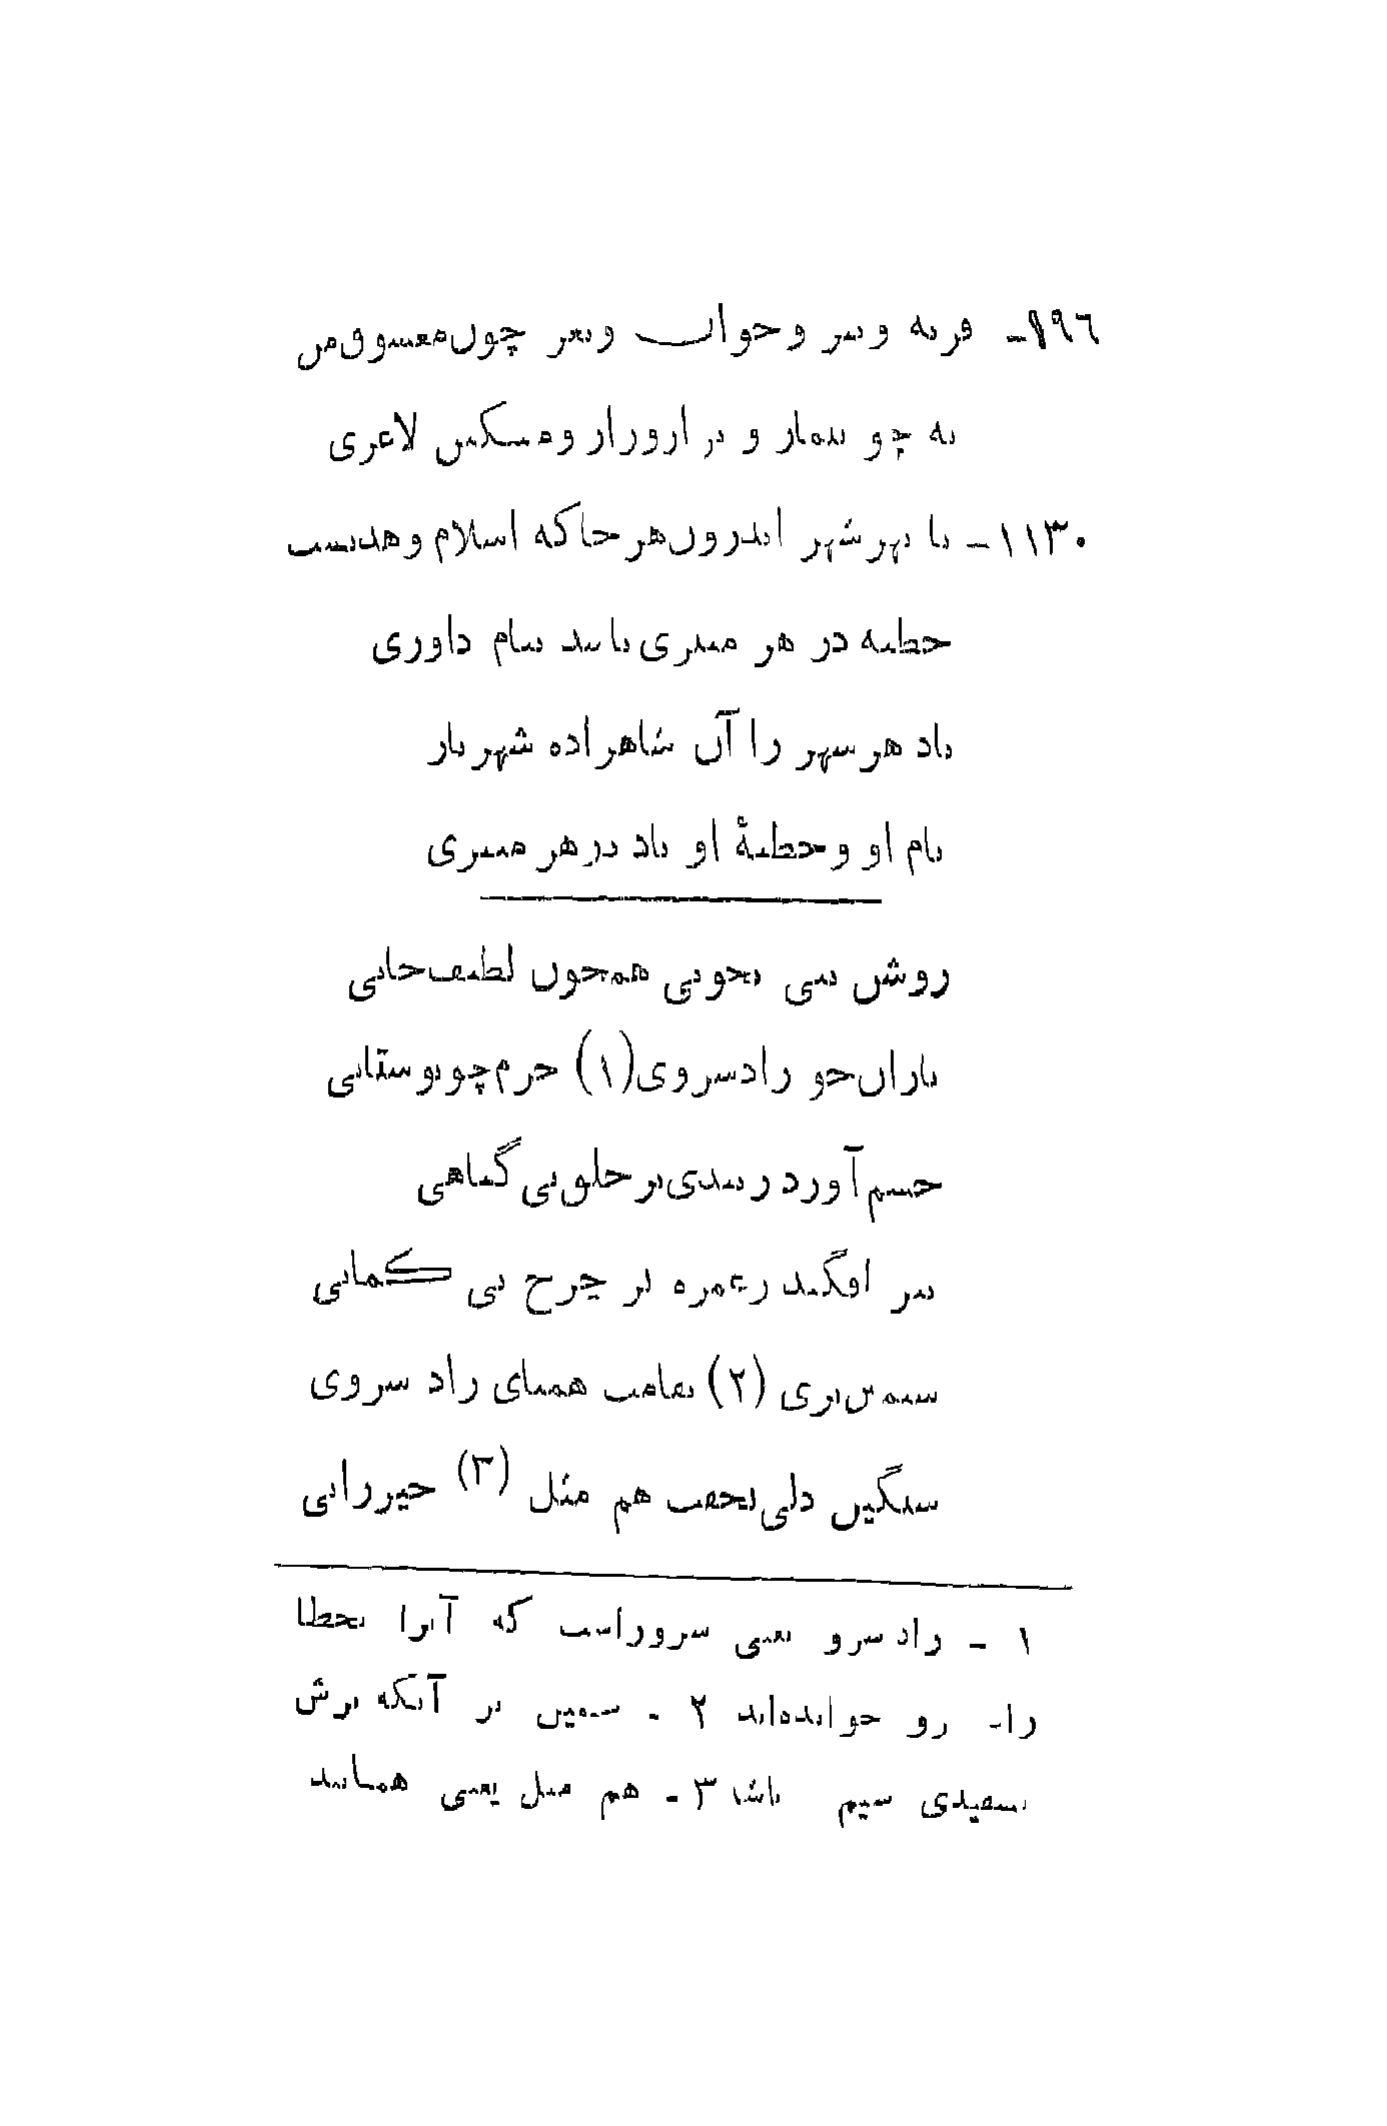 ۱۹۶- فربه و سر و جوان و نغز چون معشوق من
نه چو بیمار و نزار و زار و مسکین لاغری
۱۱۳۰- تا بهر شهر اندرون هر جا که اسلام و هدیست
خطبه در هر منبری باشد بنام داوری
باد هر شهر را آن شاهزاده شهریار
نام او و خطبهٔ او باد بر هر منبری
روشن بخوبی همچون لطیف جانی
نازان چو رادسروی (۱) خرم چو بوستانی
خشم آورد بتندی بر خلق بی گناهی
تیر افکند بغمزه بر چرخ بی کمانی
سیمین بری (۲) بقامت همتای راد سروی
سنگین دلی بخفت هم مثل (۳) خیزرانی
۱ - راد سرو یعنی سرور است که آنرا بخطا
راد رو خوانده‌اند ۲ - سیمین بر آنکه برش
بسفیدی سیم باشد ۳ - هم مثل یعنی همانند